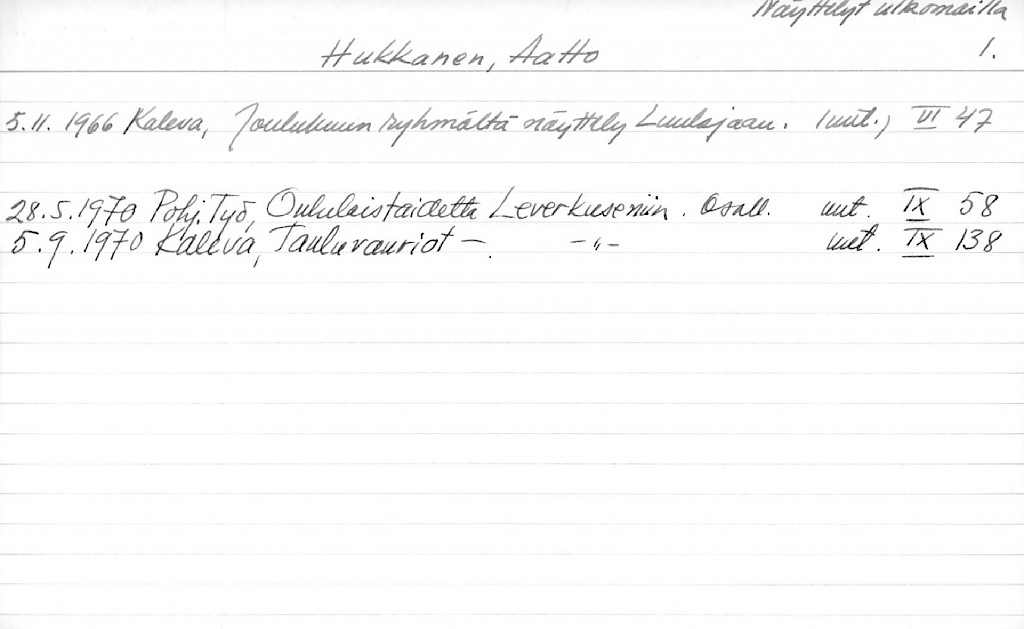 Näyttelyt ulkomailla
Hukkanen, Aatto 1.
5.11.1966 Kaleva, Joulukuun ryhmältä näyttely Luulajaan. (uut.) VI 47
28.5.1970 Pohj. Työ, Oululaistaidetta Leverkuseniin. Osall. uut. IX 58
5.9.1970 Kaleva, Tauluvauriot – –"– uut. IX 138